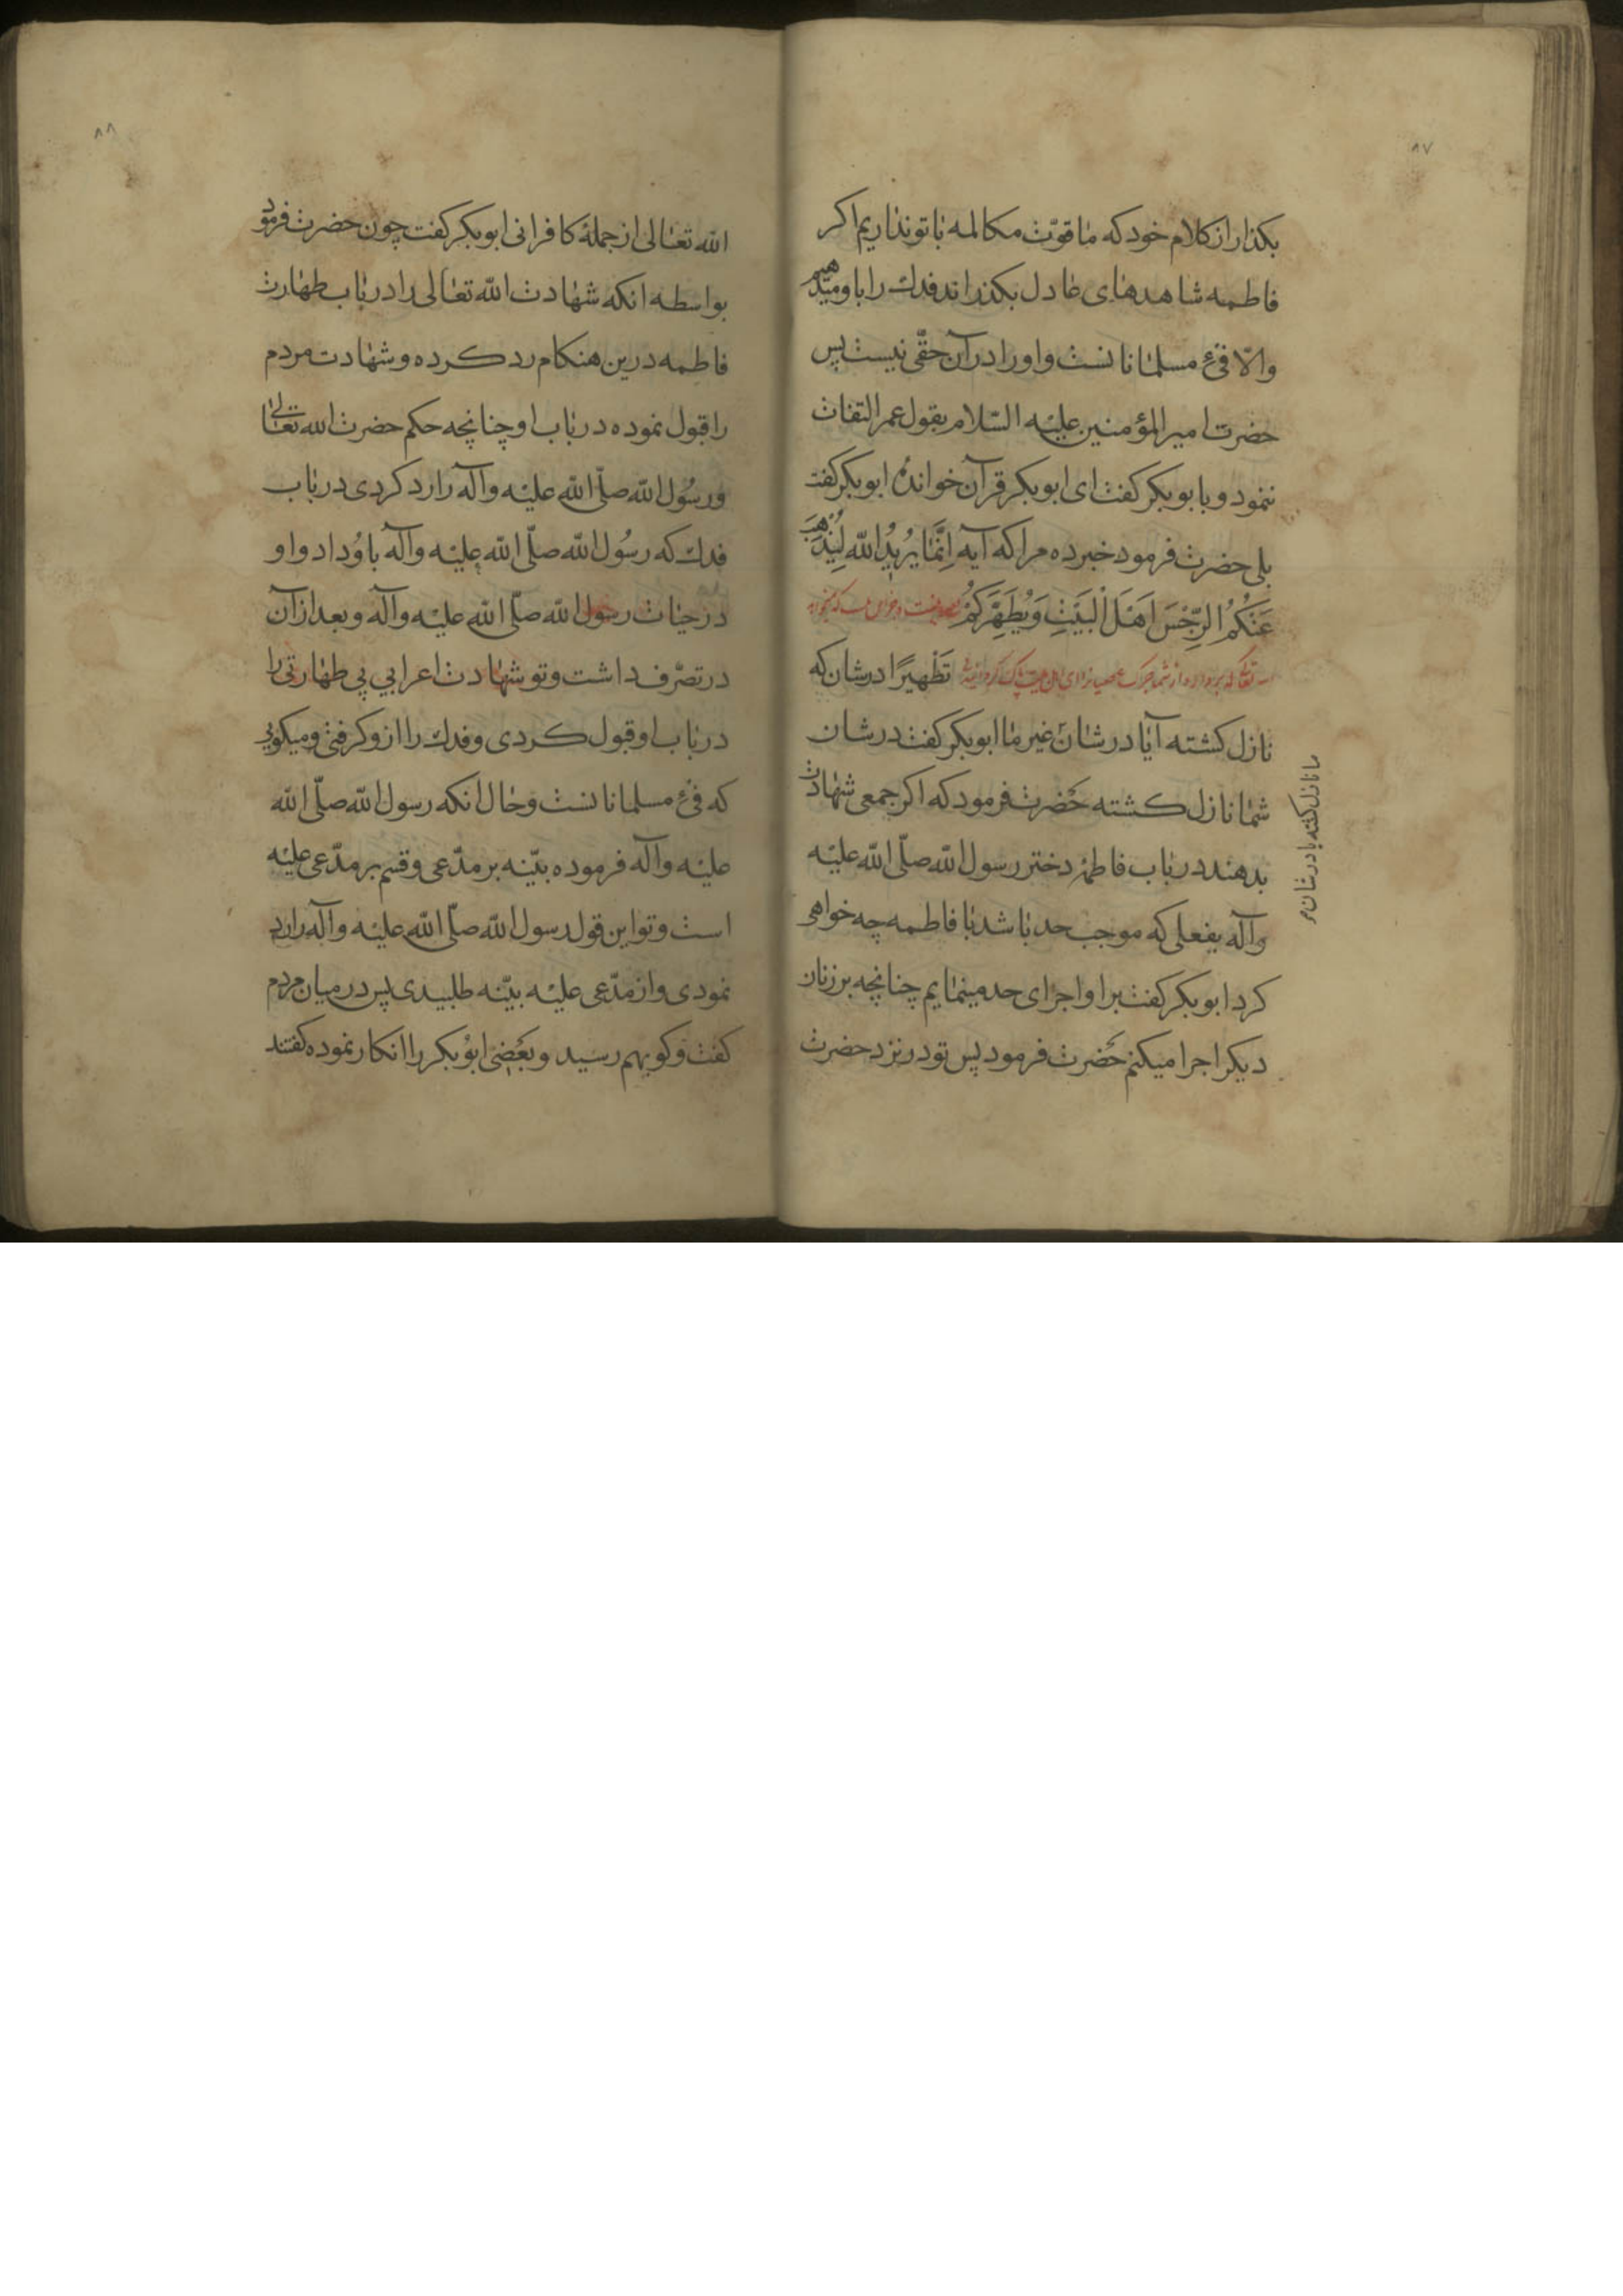 ۸۷
بكذار از كلام خود كه ما قوّت مكالمه با تو نداريم اكر
فاطمه شاهدهاى عادل بكذراند فدك را باو ميدهيم
والّا فئ مسلمانانست و او را در آن حقّى نيست پس
حضرت امير المؤمنين عليه السّلام بقول عمر التفات
ننمود و با بوبكر كفت اى ابوبكر قرآن خوانده ابوبكر كفت
بلى حضرت فرمود خبر ده مرا كه آيه اِنَّمَا يُرِيدُ اللّه لِيُذْهِبَ
عَنْكُمُ الرِّجْسَ اَهْلَ الْبَيْتِ وَيُطَهِّرَكُمْ
تَطْهِيرًا در شان كه
نازل كشته آيا در شان ما يا در شان غير ما ابوبكر كفت در شان
شما نازل كشته حضرت فرمود كه اكر جمعى شهادت
بدهند در باب فاطمه دختر رسول اللّه صلّى اللّه عليه
وآله بفعلى كه موجب حد باشد با فاطمه چه خواهى
كرد ابوبكر كفت بر او اجراى حد مينمايم چنانچه بر زنان
ديكر اجرا ميكنم حضرت فرمود پس تو در نزد حضرت
ما نازل كشته يا در شان
۸۸
اللّه تعالى از جملۀ كافرانى ابوبكر كفت چون حضرت فرمود
بواسطه انكه شهادت اللّه تعالى را در باب طهارت
فاطمه درين هنكام رد كرده و شهادت مردم
را قبول نموده در باب او چنانچه حكم حضرت اللّه تعالى
ورسُول اللّه صلّى اللّه عليه وآله را رد كردى در باب
فدك كه رسُول اللّه صلّى اللّه عليه وآله باو داد و او
در حيات رسول اللّه صلّى اللّه عليه وآله و بعد از آن
در تصرّف داشت و تو شهادت اعرابي بي طهارتى را
در باب او قبول كردى و فدك را ازو كرفتى و ميكويى
كه فئ مسلمانانست و حال انكه رسول اللّه صلّى اللّه
عليه وآله فرموده بيّنه بر مدّعى و قسم بر مدّعى عليه
است و تو اين قول رسول اللّه صلّى اللّه عليه وآله را رد
نمودى و از مدّعى عليه بيّنه طلبيدى پس در ميان مردم
كفت و كو بهم رسيد و بعضى ابوبكر را انكار نموده كفتند